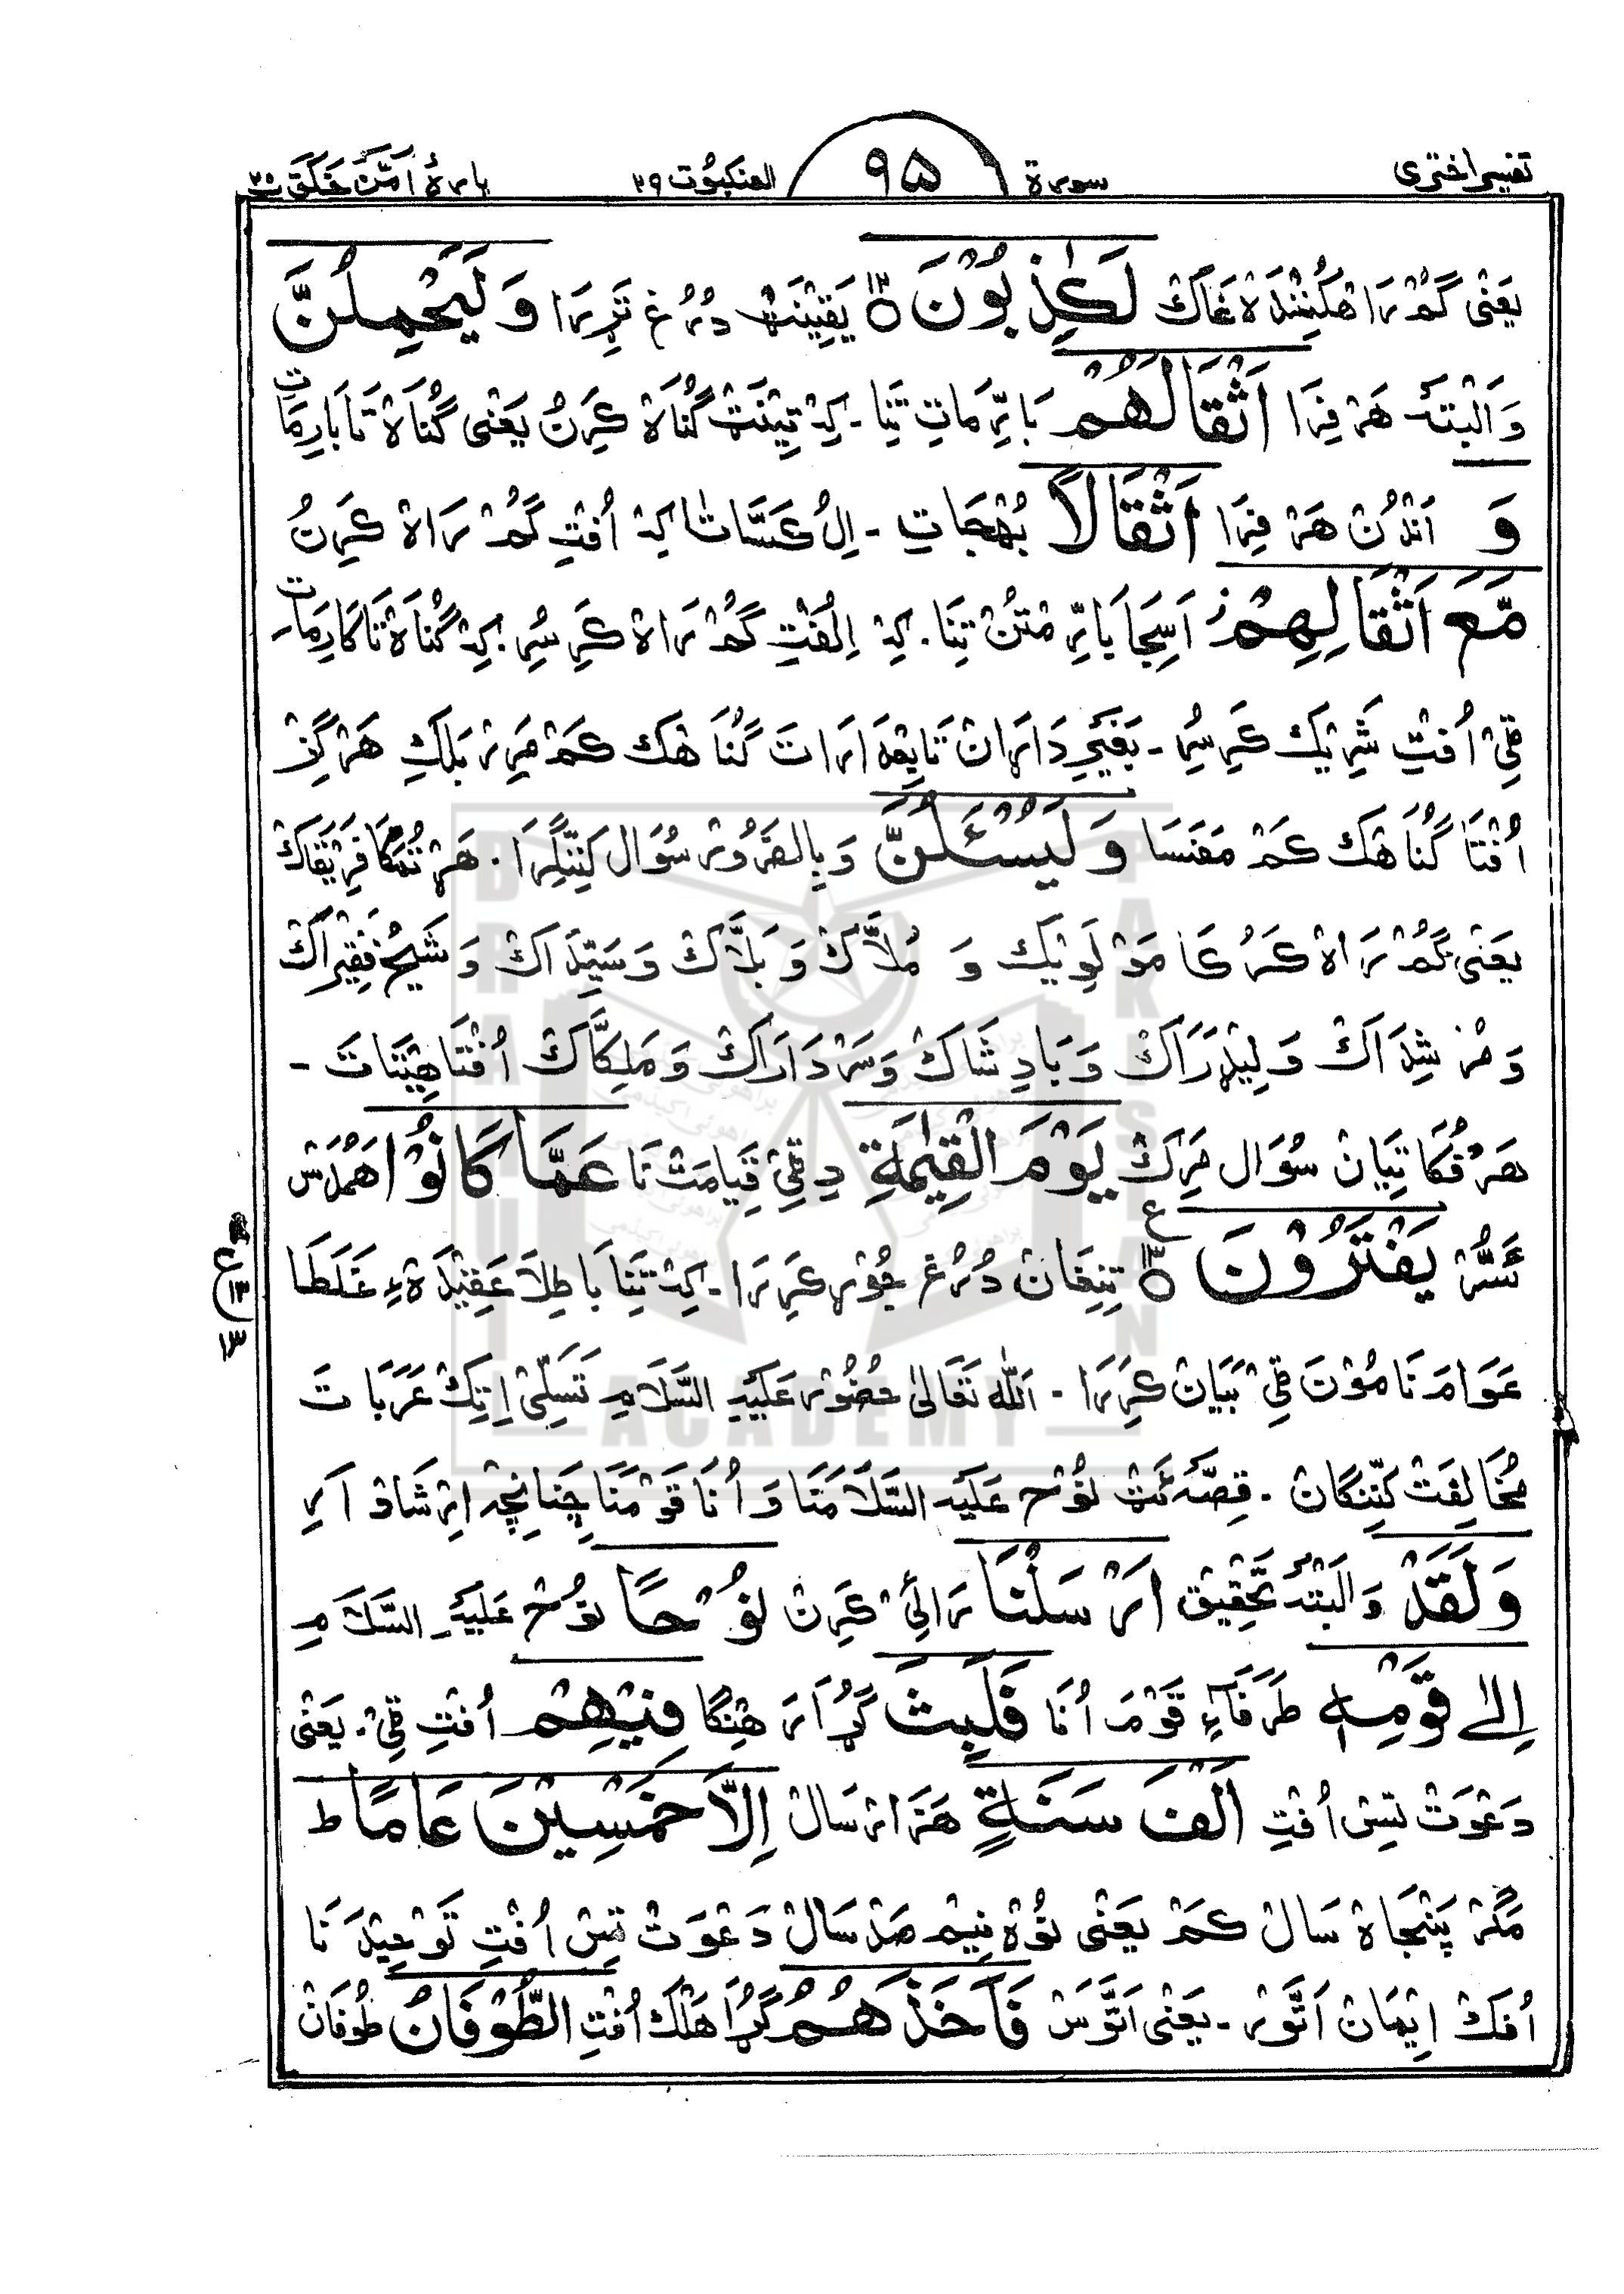 تفسیر اختری سورة ۹۵ العنکبوت ۲۹ پارۂ اَمَّنْ خَلَقَ ۲۰
یَعْنِی گُمْ رَا لَكٰذِبُوْنَ ۱۲ یَقِیْنَٹْ دُرُغْ تَرِرَا وَ لَیَحْمِلُنَّ
وَالْبَتَّہ هَرْفِرَا اَثْقَالَهُمْ بَارِّمَاتِ تِنَا ـ کِہْ تِیْنَتْ گُنَاهْ کَرِنُ یَعْنِی گُنَاهْ تَا بَارِمَاتِ
وَ اَنْدُنْ هَرْفِرَا اَثْقَالًا بُهْجَاتِ ـ اِلُ کَسَّاتَا کِہْ اُفْتِ گُمْ رَاهْ کَرِنُ
مَّعَ اَثْقَالِهِمْ اَسِجَا بَارِّمْتَنْ تِنَا ـ کِہْ اِلُفْتِ گُمْ رَاهْ کَرِسُر ـ کِہْ گُنَاهْ تَا کَارِمَاتِ
قِیْ اُفْتِ شَرِیْك کَرِسُر ـ تَابِعْدَارَاتَ گُنَاهَك کَمْ مَرِرْ بَلْکِ هَرْگِزْ
اُفْتَا گُنَاهَك کَمْ مَفَنَسَا وَ لَیُسْـَٔلُنَّ وَبِالضَّرُوْر سُوَال کِنِّنْگِرَا ـ هَرْ تُمَکَا فَرِیْقَاك
یَعْنِی گُمْ رَاهْ کَرُکَا مَوْلَوِیْك وَ مُلَّاكْ وَ بَلَّاكْ وَ سَیِّدَاكْ وَ شَیْخْ فَقِیْرَاكْ
وَ مُرْشِدَاكْ وَ لِیْڈَرَاكْ وَ بَادِشَاكْ وَ سَرْدَارَاكْ وَ مَلِکَّاكْ اُفْتَا هِیْتَاتَ ـ
هَرْ تُکَا تِیَانْ سُوَال مَرِكْ یَوْمَ الْقِیٰمَةِ دِ قِیْ قِیَامَتْ نَا عَمَّا کَانُوْا هَمْدَسْ
یَفْتَرُوْنَ ۱۳ ع تِنِغَانْ دُرُغْ جُوْر کَرِرَا ـ کِہْ تِنَا بَاطِلَا عَقِیْدَهْءِ غَلَطَا
عَوَامْ نَا مُوْنَ قِیْ بَیَانْ کَرِرَا ـ اَللّٰهُ تَعَالٰی حُضُوْر عَلَیْہِ السَّلَام تَسَلِّیْ اِتِكْ عَرَبَاتَ
مُخَالِفَتْ کِنِّنْگَانْ ـ قِصَّہْ ئَٹْ نُوْحْ عَلَیْہِ السَّلَامْنَا وَ اُنَا قَوْمْنَا چَنَانِچِہْ اِرْشَادْ اَرِ
وَ لَقَدْ وَالْبَتَّہْ تَحْقِیْق اَرْسَلْنَا رَاهِیْ کَرِنْ نُوْحًا نُوْحْ عَلَیْہِ السَّلَامِ
اِلٰی قَوْمِهٖ طَرَفَآءِ قَوْمْ اُنَا فَلَبِثَ گُڑَا رَهِنْگَا فِیْهِمْ اُفْتِ قِیْ ـ یَعْنِی
دَعْوَتْ تِسْ اُفْتِ اَلْفَ سَنَةٍ هَزَارْ سَالْ اِلَّا خَمْسِیْنَ عَامًا ط
مَگَرْ پَنْجَاهْ سَالْ کَمْ یَعْنِی نُوْهْ نِیْمْ صَدْ سَالْ دَعْوَتْ تِسْ اُفْتِ تَوْحِیْدْ نَا
اُفَكْ اِیْمَانْ اَتَّوْر ـ یَعْنِی اَتَّوْسْ فَاَخَذَهُمُ گُڑَا هَلْكْ اُفْتِ الطُّوْفَانُ طُوْفَانْ